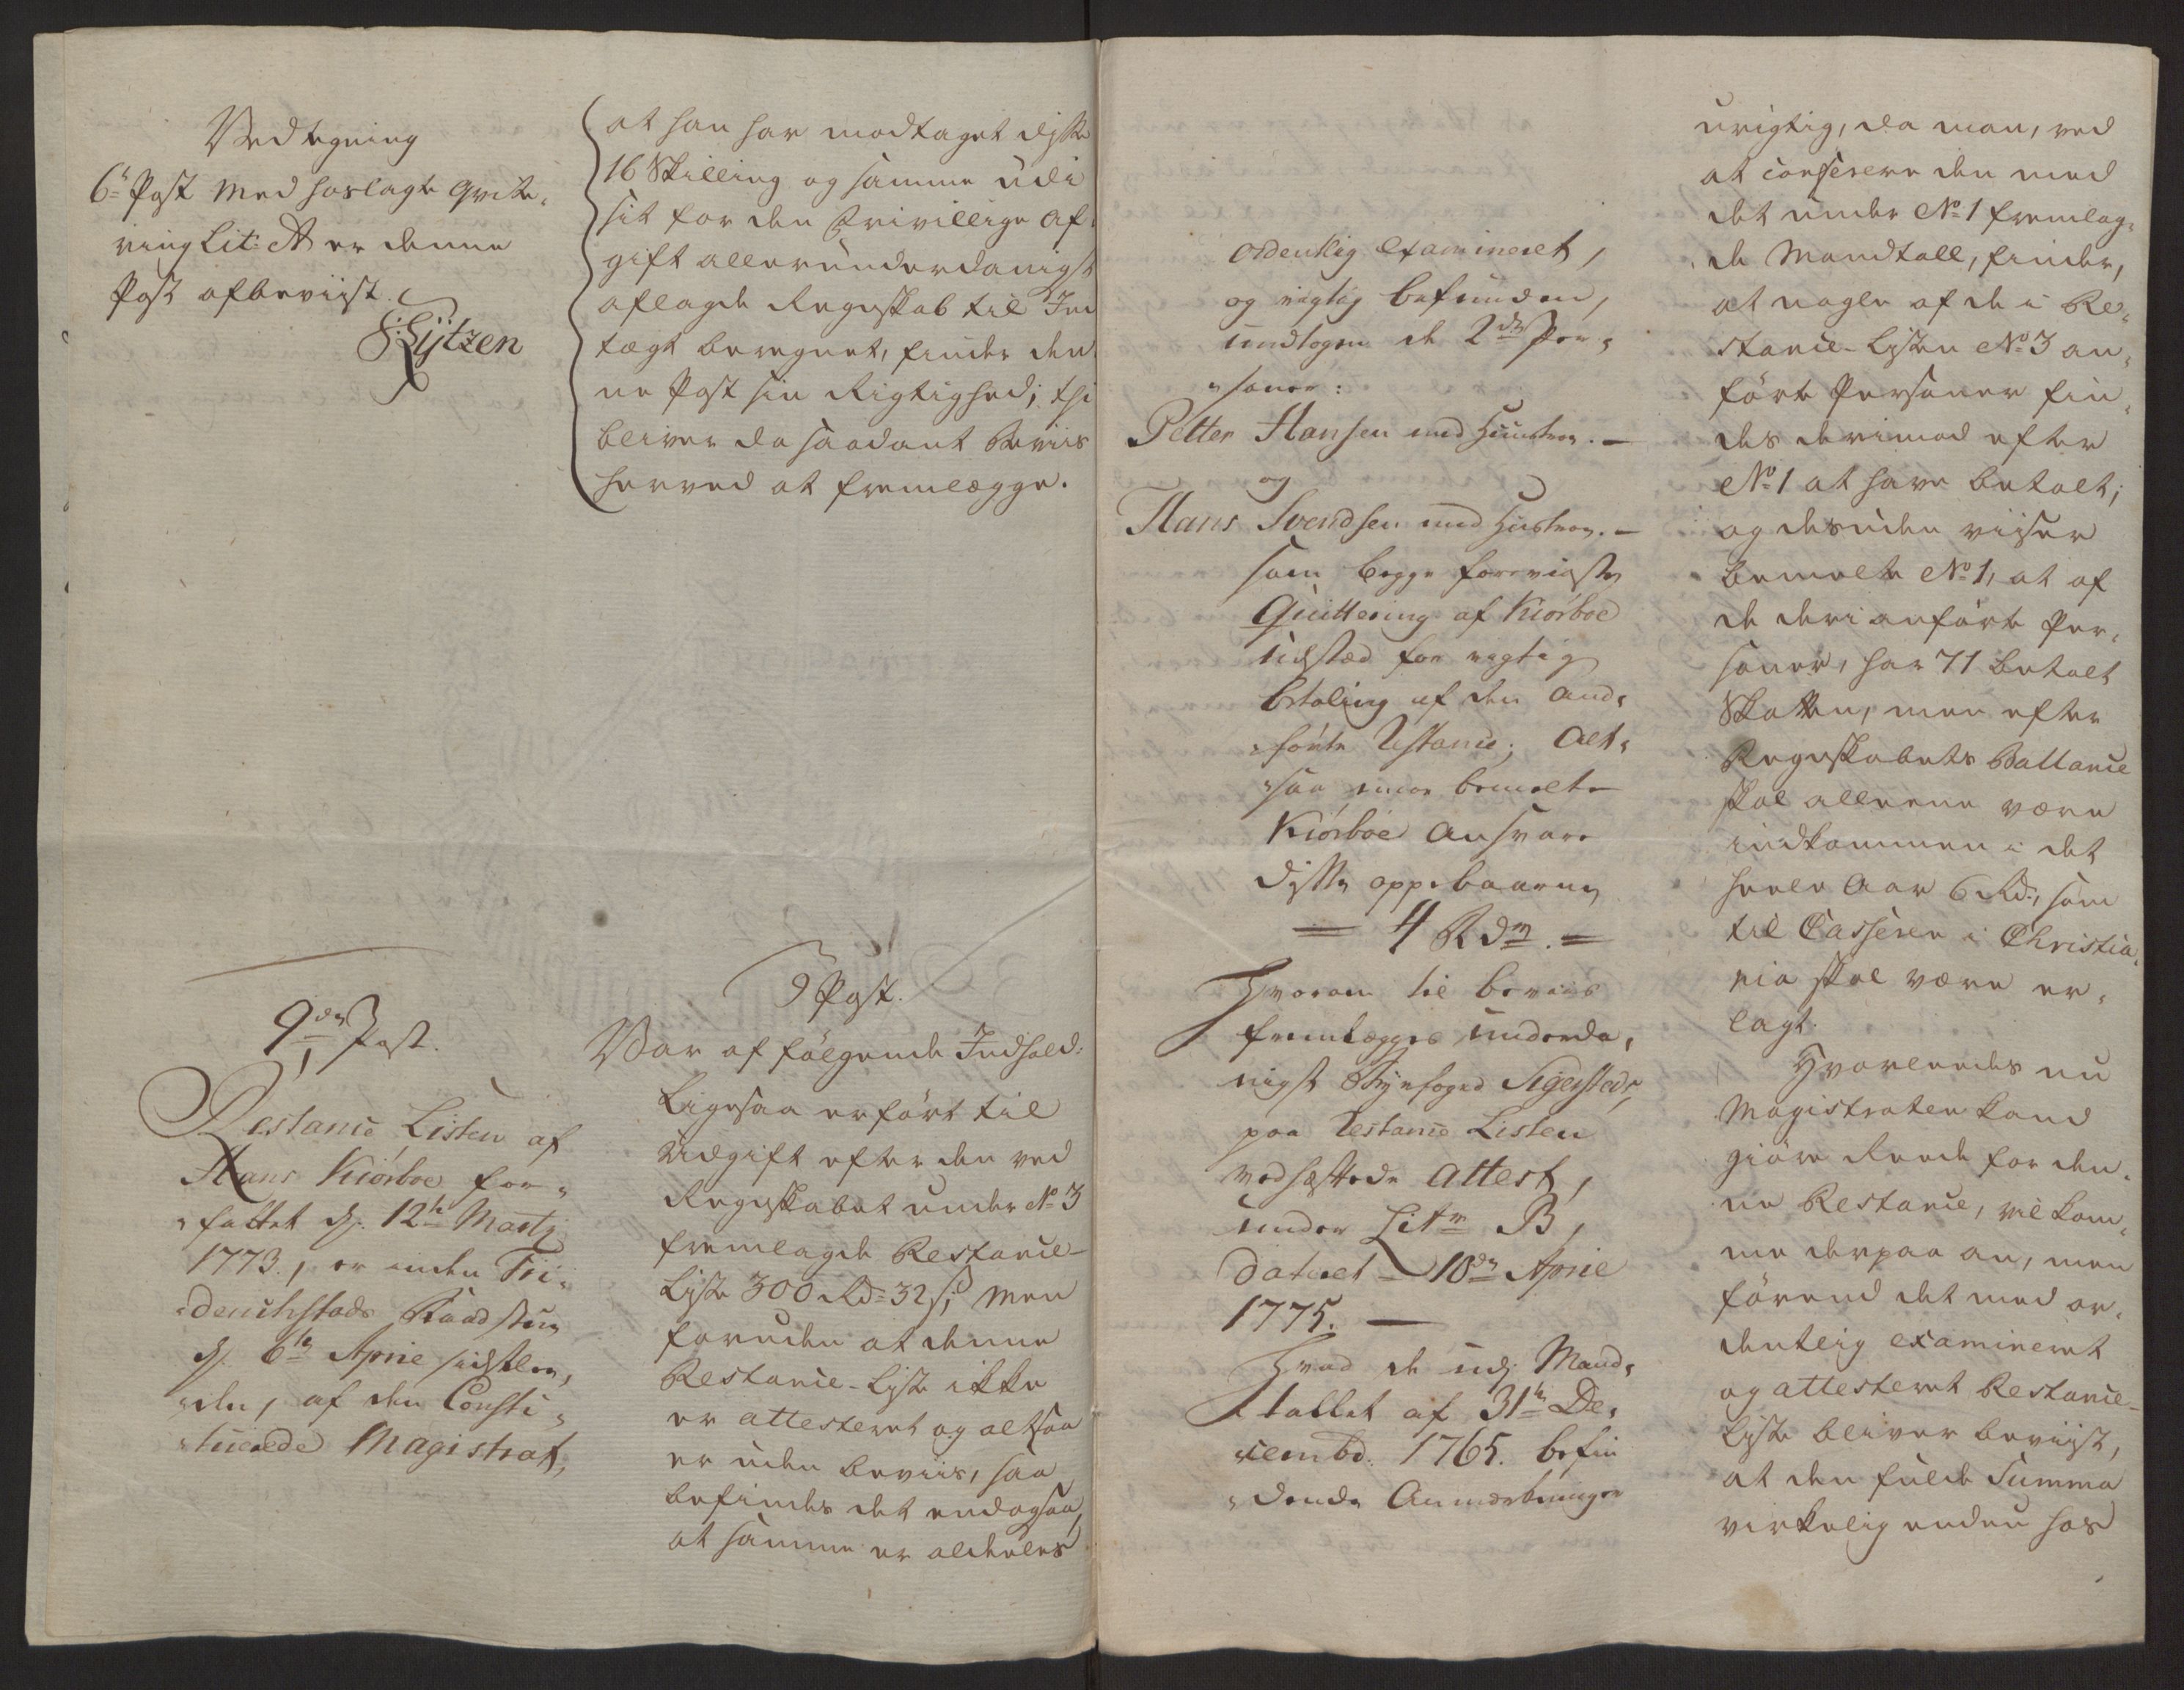 Ved tegning
6te Post med hoslagte Qvite,
ring Lit: A er denne
Post afbeviist.
S: Lytzen
at han har modtaget disse
16 Skilling og samme udi
sit for den Frivillige Af,
gift allerunderdanigst
aflagde Regnskab til Ind
tægt beregnet, finder den
ne Post sin Rigtighed; thi
bliver da saadant Beviis
herved at fremlægge.
9de Post.
Restance Listen af
Hans Kiörboe for,
fattet d. 12te Martj
1773, er inden Fri,
derichstads Raadstue
d. 6te April sidstlea,
den, af den Consti,
tuerede Magistrat,
9 Post.
Var af følgende Indhold:
Ligesaa er ført til
Udgift efter den ved
Regnskabet under No 3
fremlagde Restance-
Liste 300 Rd. 32 s; men
foruden at denne
Restance-Liste ikke
er attesteret og altsaa
er uden beviis, saa
befindes det endogsaa,
at samme er aldeles
ordentlig Examineret,
og rigtig befunden,
undtagen de 2de Per,
soner:
Petter Hansen med Hustroe. -
og
Hans Svendsen med Hustroe. -
som begge foreviiste
Quittering af Kiörboe
udstæd for rigtig
betaling af den and,
førte Restance; Alt,
saa maa bemelte
Kiörboe Ansvare
disse oppebaarne
= 4 Rdr. =
Hvorom til beviis
fremlægges underda,
nigst Byefoged Sigersteds
paa Restance Listen
vedhæftede Attest,
under Litr B,
datert 10de April
1775. -
Hvad de udj Mand,
tallet af 31te De,
cembr. 1765. befin
dende Anmerkninger
urigtig, da man, ved
at conferere den med
det under No 1 fremlag,
de Mandtall, finder,
at nogle af de i Re,
stance-Listen No 3 an,
førte Personer fin,
des derimod efter
No 1 at have betalt;
og desuden viiser
bemelte No 1, at af
de deri anførte Per,
soner, har 71 betalt
Skatten, men efter
Regnskabets Ballance
skal alleene være
indkommen i det
heele Aar 6 Rd:, som
til Casserer i Christia,
nia skal være er,
lagt.
Hvorleedes nu
Magistraten kand
giöre Reede for den,
ne Restance, vil kom,
me derpaa an, men
förend det med or,
dentlig examineret
og attesteret Restance-
Liste bliver beviist,
at den fulde Summa
virkelig endnu hos